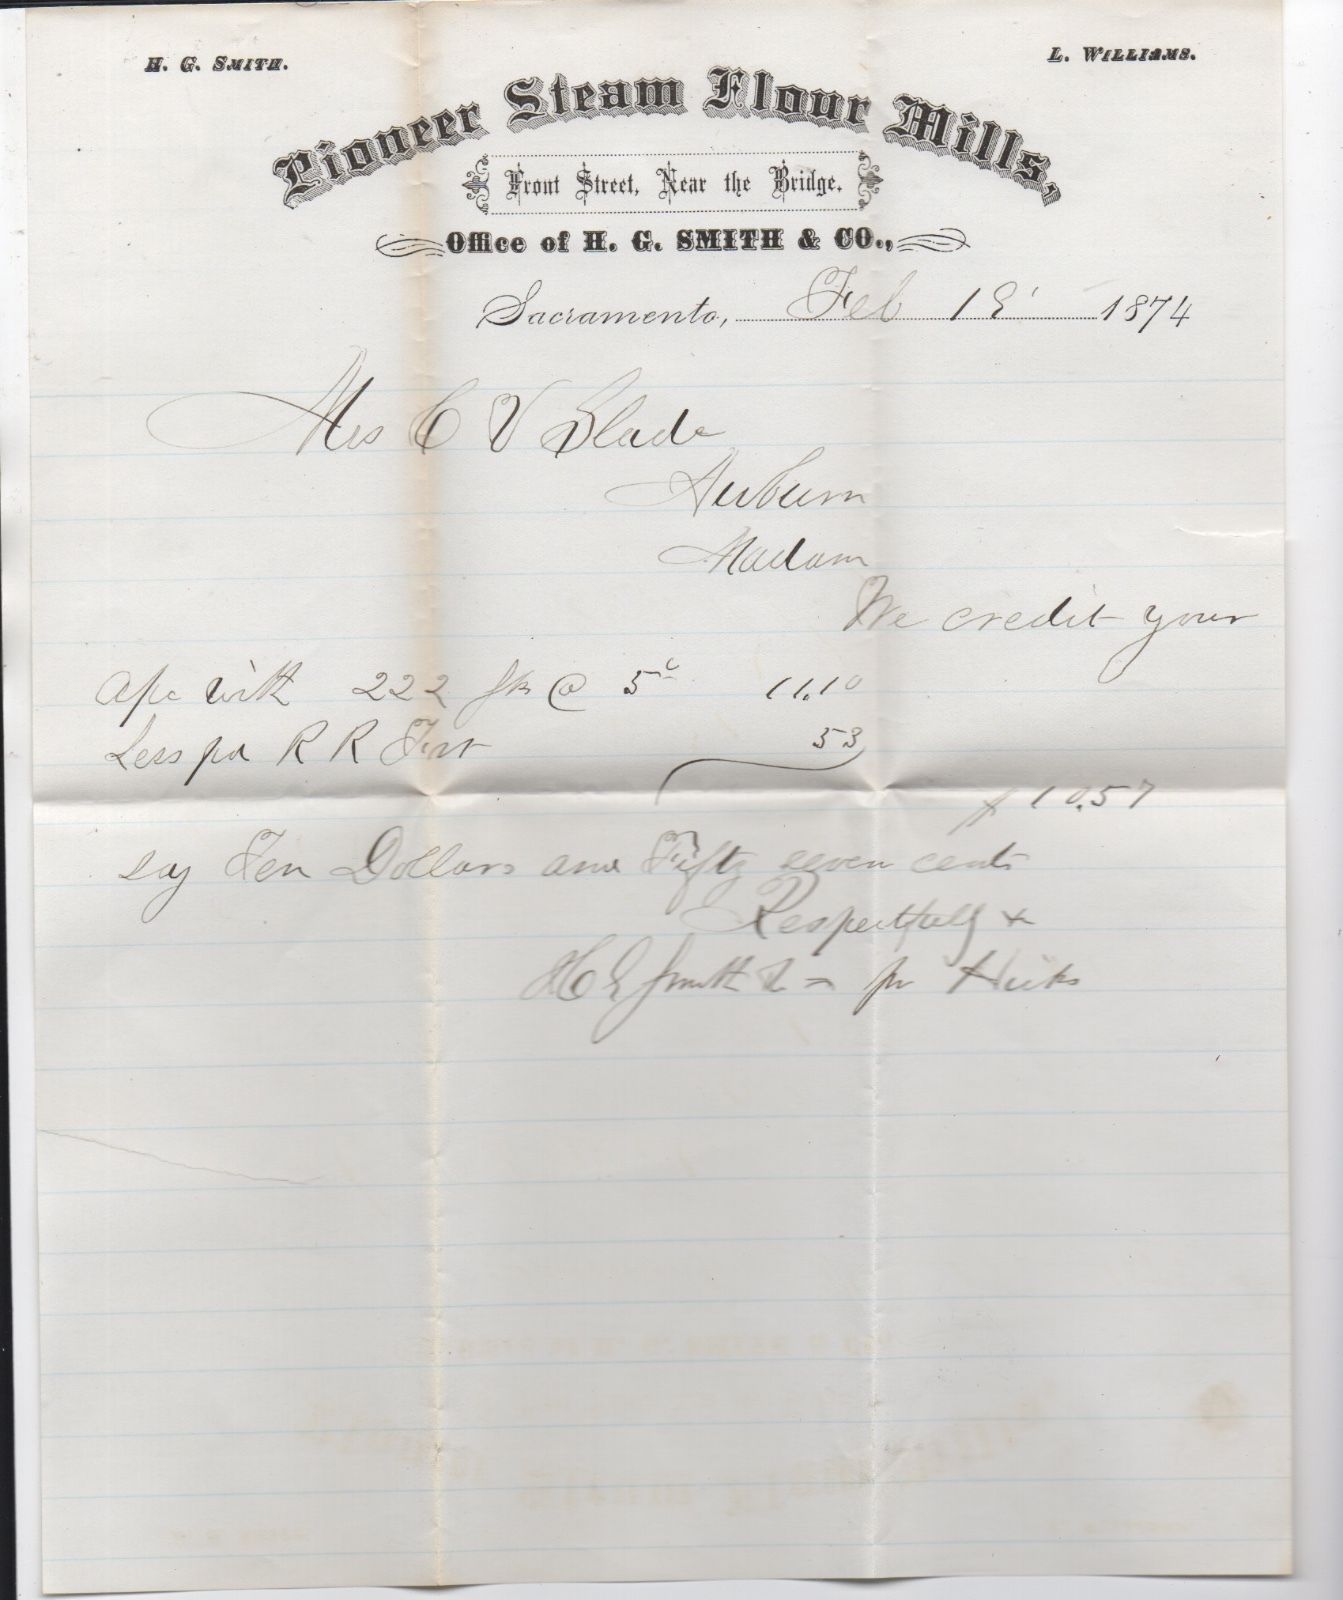 H. G. SMITH.
L. WILLIAMS.
Pioneer Steam Flour Mills,
Front Street, Near the Bridge.
Office of H. G. SMITH & CO.,
Sacramento, Feb 1874
Mrs C V Slade
Auburn
Madam
We credit your
a/c with 222 sks @ 5c 11.10
Less pd R R Frt 53
$10.57
say Ten Dollars and Fifty seven cents
Respectfully
H G Smith & Co pr Hicks